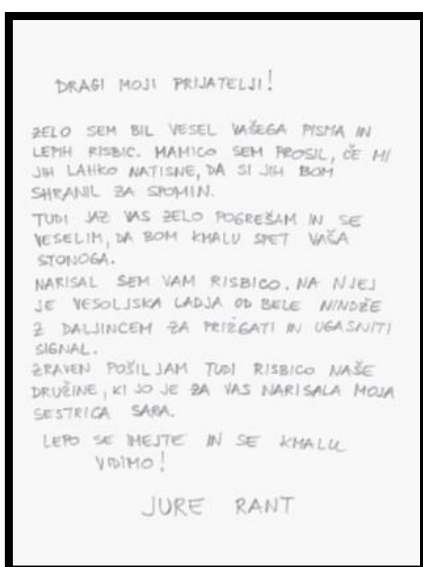 DRAGI MOJI PRIJATELJI!
ZELO SEM BIL VESEL VAŠEGA PISMA IN
LEPIH RISBIC. MAMICO SEM PROSIL, ČE MI
JIH LAHKO NATISNE, DA SI JIH BOM
SHRANIL ZA SPOMIN.
TUDI JAZ VAS ZELO POGREŠAM IN SE
VESELIM, DA BOM KMALU SPET VAŠA
STONOGA.
NARISAL SEM VAM RISBICO. NA NJEJ
JE VESOLJSKA LADJA OD BELE NINDŽE
Z DALJINCEM ZA PRIŽGATI IN UGASNITI
SIGNAL.
ZRAVEN POŠILJAM TUDI RISBICO NAŠE
DRUŽINE, KI JO JE ZA VAS NARISALA MOJA
SESTRICA SARA.
LEPO SE IMEJTE IN SE KMALU
VIDIMO!
JURE RANT